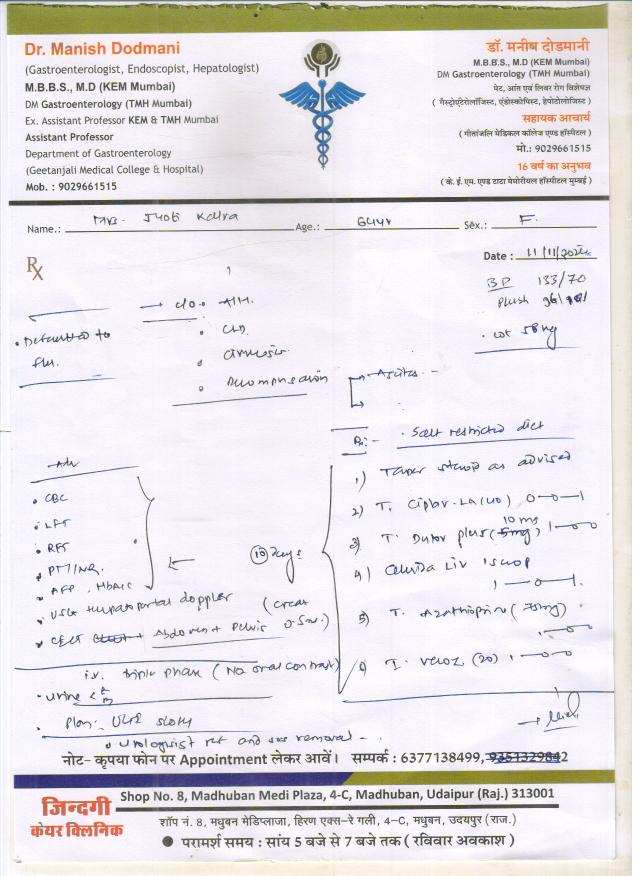 Dr. Manish Dodmani
(Gastroenterologist, Endoscopist, Hepatologist)
M.B.B.S., M.D (KEM Mumbai)
DM Gastroenterology (TMH Mumbai)
Ex. Assistant Professor KEM & TMH Mumbai
Assistant Professor
Department of Gastroenterology
(Geetanjali Medical College & Hospital)
Mob. : 9029661515
डॉ. मनीष दोडमानी
M.B.B.S., M.D (KEM Mumbai)
DM Gastroenterology (TMH Mumbai)
पेट, आंत एवं लिवर रोग विशेषज्ञ
( गैस्ट्रोएंटेरोलॉजिस्ट, एंडोस्कोपिस्ट, हेपोटोलोजिस्ट )
सहायक आचार्य
( गीतांजलि मेडिकल कॉलेज एण्ड हॉस्पीटल )
मो.: 9029661515
16 वर्ष का अनुभव
( के. ई. एम. एण्ड टाटा मेमोरीयल हॉस्पीटल मुम्बई )
Name.: Mrs. Jyoti Kalra Age.: 64yr Sex.: F.
Date : 11/11/
Rx
BP 133/70
wt 58 kg
c/o AIH.
CLD
Cirrhosis
Decompensation
Ascites
Rx:- Salt restricted diet
Adv
CBC
LFT
RFT
PT/INR
AFP, HbA1c
USG hepatoportal doppler
CECT Abdomen + Pelvis
i.v. triple phase (No oral contrast)
Urine
Plan:
Urologist and removal
10 days
1) Taper steroid as advised
2) T. (40) 0-0-1
3) T. Dytor plus (10 mg) 1-0-0
4) Liv 1 scoop
1-0-1
5) T. Azathioprine
1-0-0
6) T. Veloz (20) 1-0-0
नोट- कृपया फोन पर Appointment लेकर आवें। सम्पर्क : 6377138499, 9351329842
जिन्दगी
केयर क्लिनिक
Shop No. 8, Madhuban Medi Plaza, 4-C, Madhuban, Udaipur (Raj.) 313001
शॉप नं. 8, मधुबन मेडिप्लाजा, हिरण एक्स-रे गली, 4-C, मधुबन, उदयपुर (राज.)
● परामर्श समय : सांय 5 बजे से 7 बजे तक ( रविवार अवकाश )